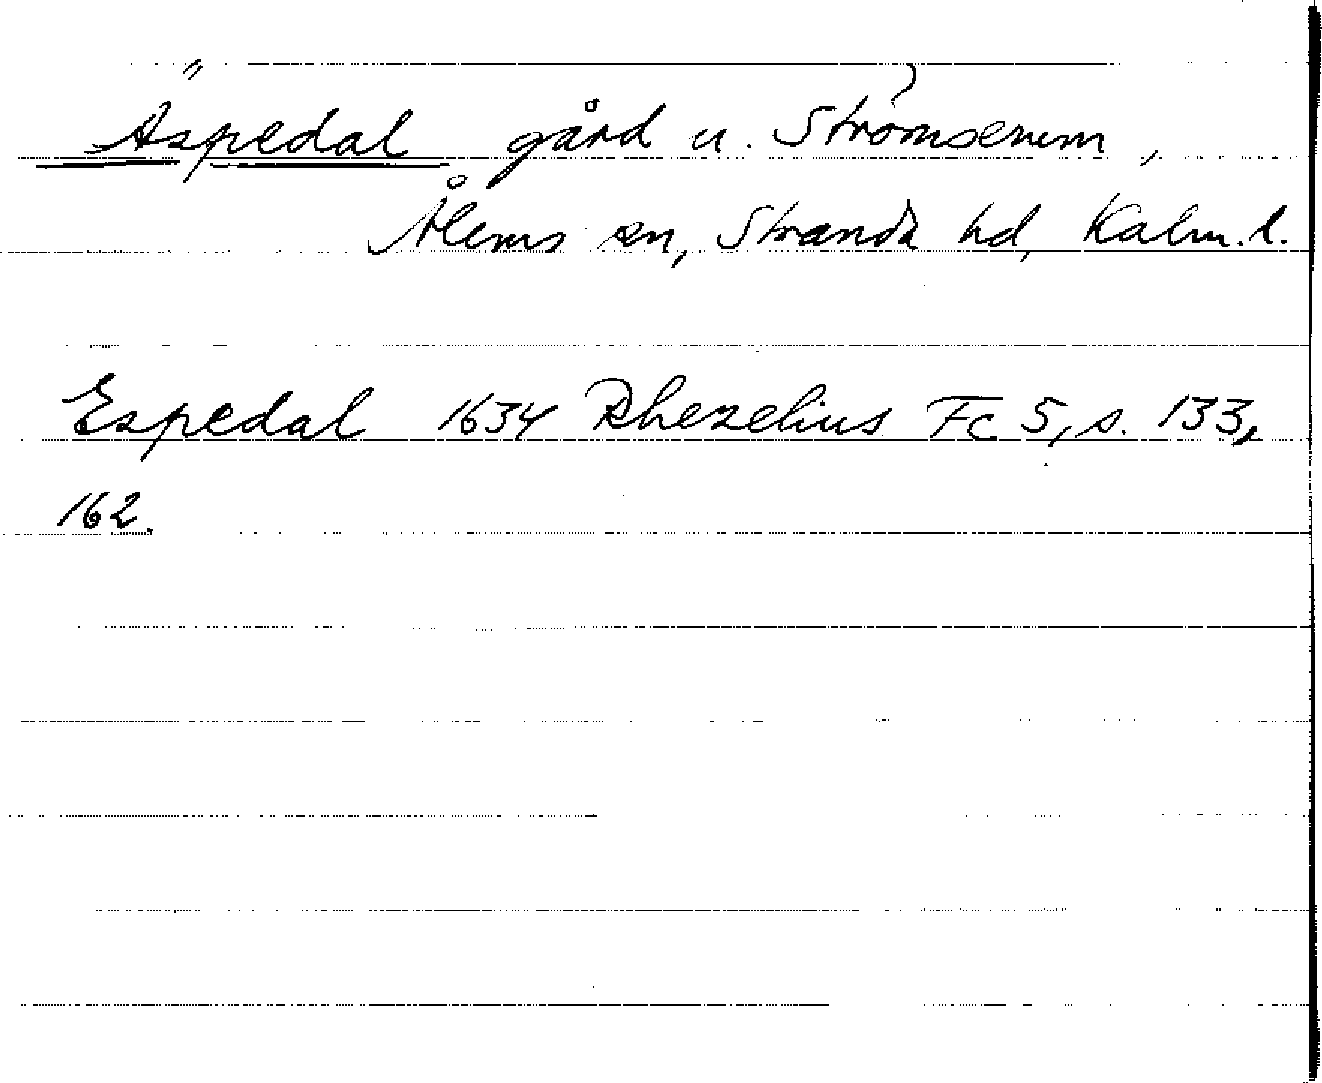 Äspedal gård u. Strömserum,
Ålems sn, Stranda hd, Kalm. l.
Espedal 1634 Rhezelius Fc 5, s. 133,
162.